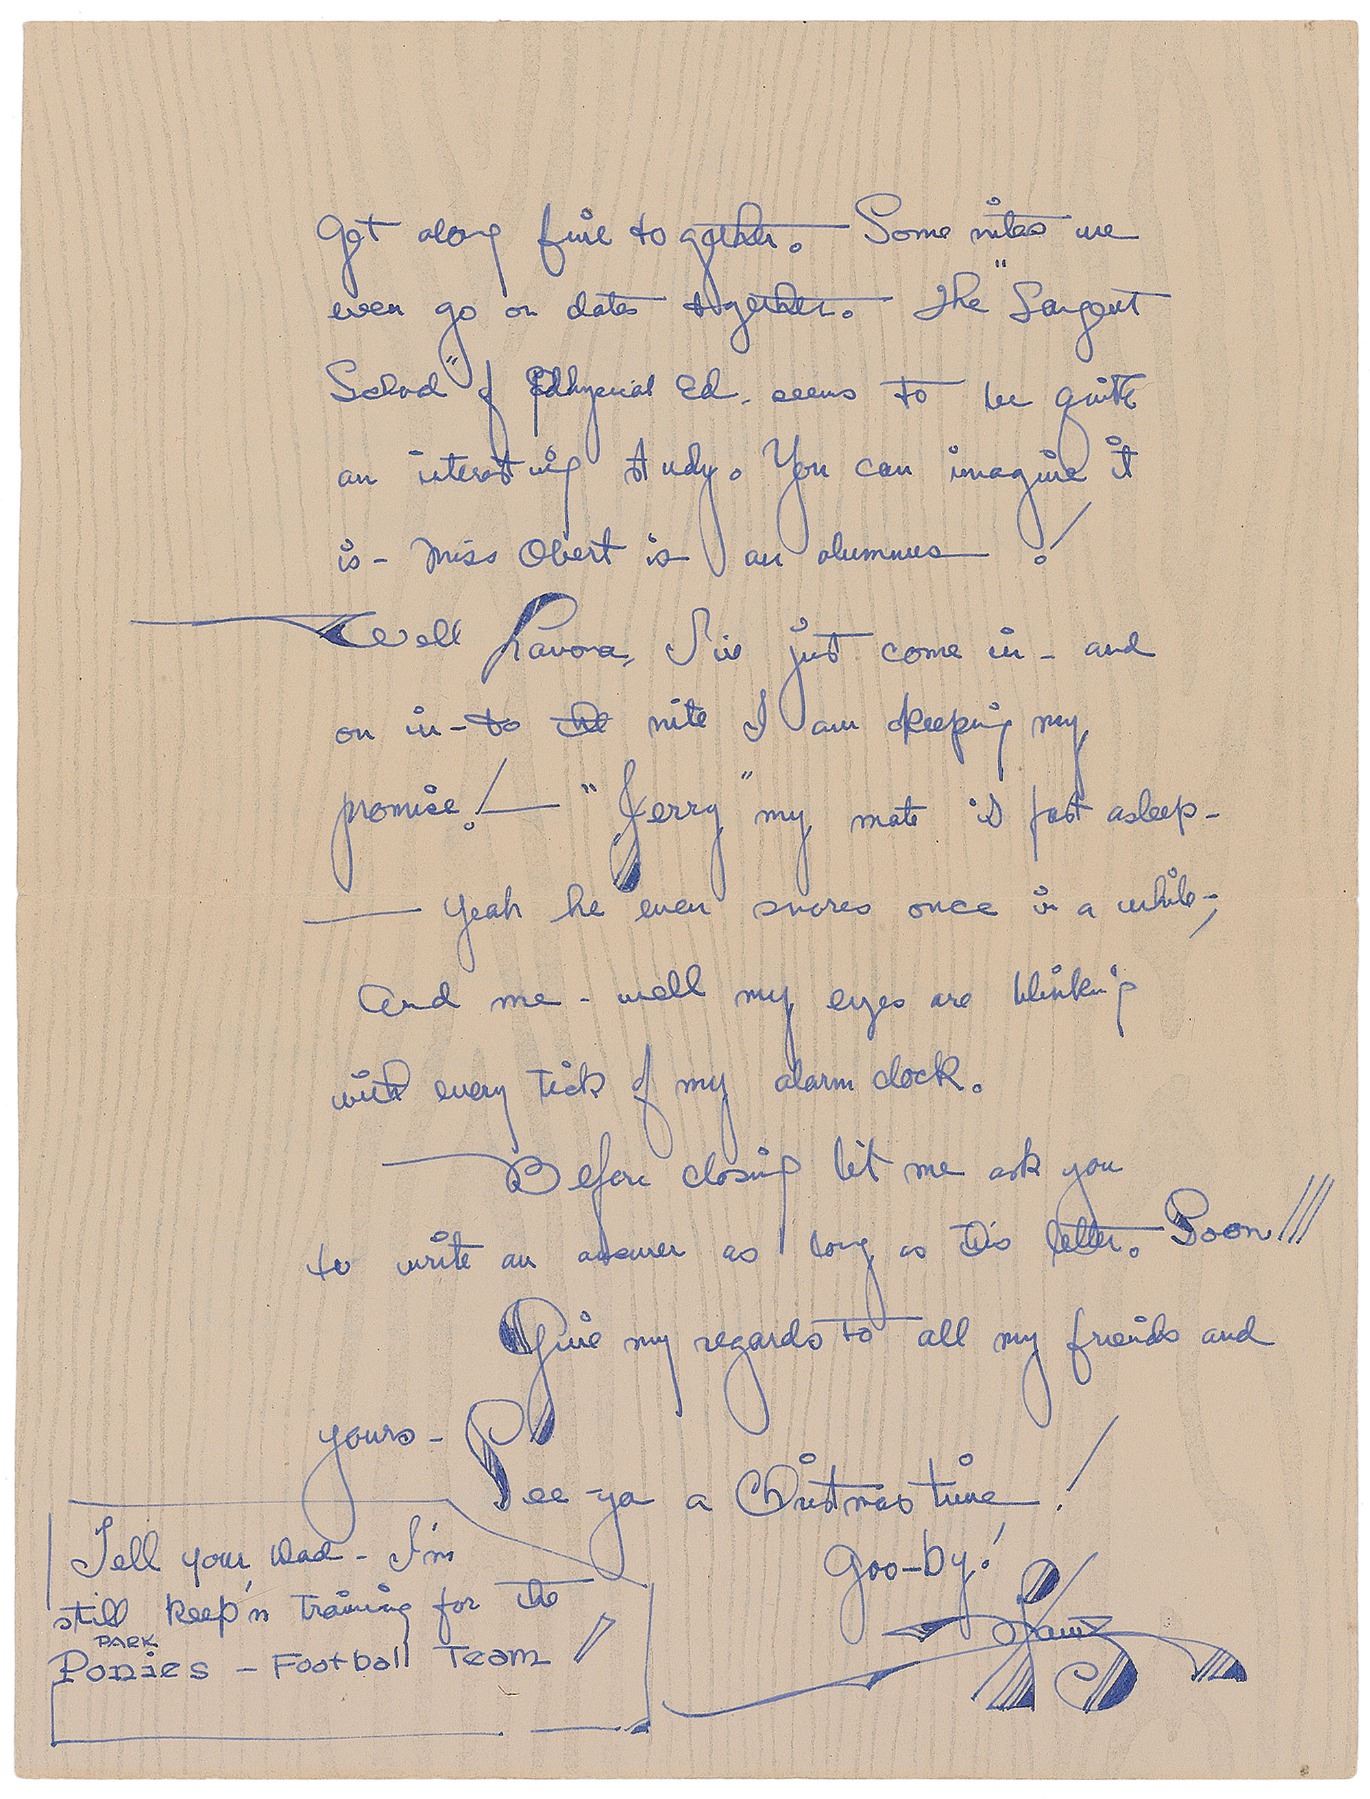 get along fine together. Some nites we
even go on dates together. The "Sargent
School" of Physical Ed. seems to be quite
an interesting study. You can imagine it
is - Miss Obert is an alumnus!
Well Lavora, I've just come in - and
on in - to the nite I am keeping my
promise! "Jerry" my mate is fast asleep -
Yeah he even snores once in a while -
And me - well my eyes are blinking
with every tick of my alarm clock.
Before closing let me ask you
to write an answer as long as this letter. Soon!!!
Give my regards to all my friends and
yours - See ya a Christmas time!
Goo-by!
Tell your Dad - I'm
still keep'n training for the
PARK
Ponies - Football Team!